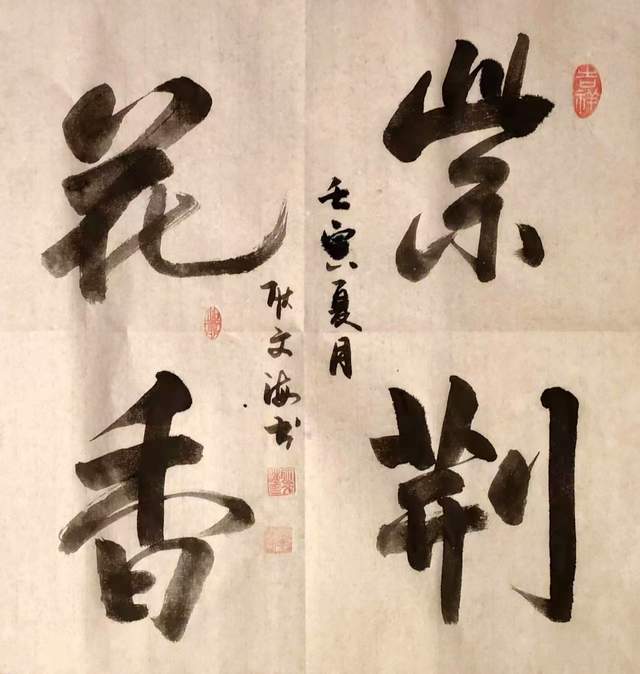 紫荆
花香
壬寅夏月
耿文海书
吉祥